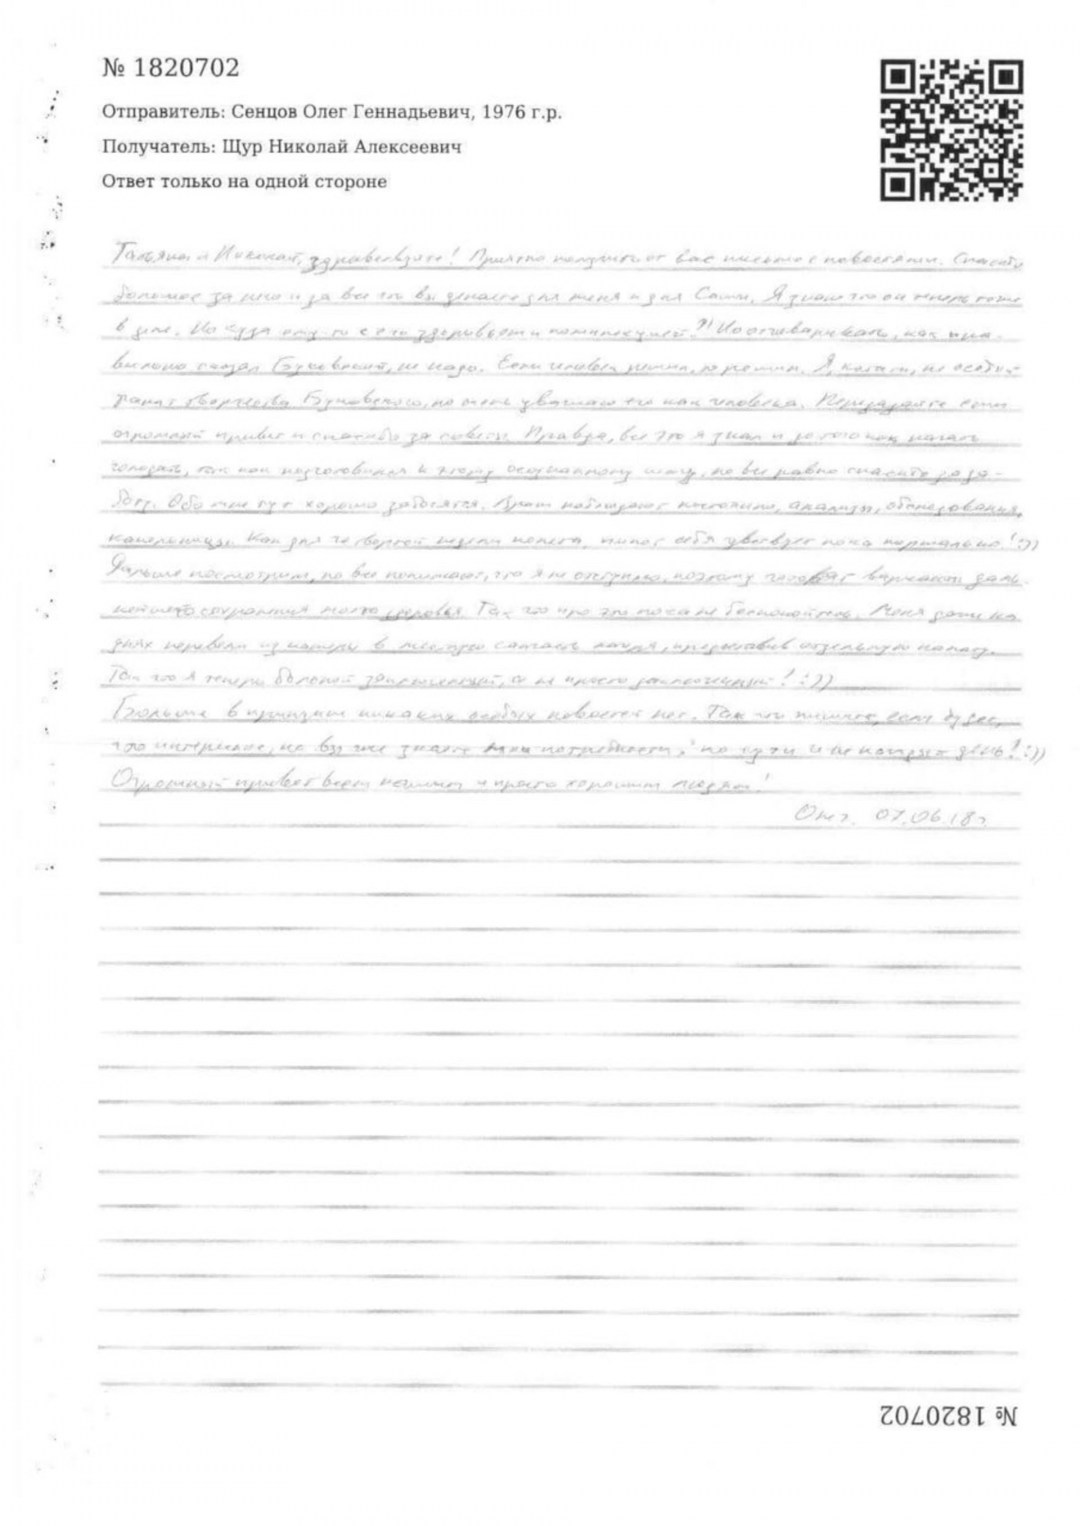 № 1820702
Отправитель: Сенцов Олег Геннадьевич, 1976 г.р.
Получатель: Щур Николай Алексеевич
Ответ только на одной стороне
Татьяна и Николай, здравствуйте! Приятно получить от вас письмо с новостями. Спасибо
большое за него и за все что вы делаете для меня и для Саши. Я знаю что он теперь тоже
в деле. Но куда ему-то с его здоровьем и комплекцией?! Но отговаривать, как пра-
вильно сказал Буковский, не надо. Если человек решил, то решил. Я, кстати, не особый
фанат творчества Буковского, но очень уважаю его как человека. Передавайте ему
огромный привет и спасибо за советы. Правда, все это я знал и до того как начать
голодать, так как подготовился к этому осознанному шагу, но все равно спасибо за за-
боту. Обо мне тут хорошо заботятся. Врачи наблюдают постоянно, анализы, обследования,
капельницы. Как для четвертой недели полета, пилот себя чувствует пока нормально! :))
Дальше посмотрим, но все понимают, что я не отступлю, поэтому готовят варианты даль-
нейшего сохранения моего здоровья. Так что про это пока не беспокойтесь. Меня даже на
днях перевели из камеры в местную санчасть лагеря, предоставив отдельную палату.
Так что я теперь больной заключенный, а не просто заключенный! :))
Больше в принципе никаких особых новостей нет. Так что пишите, если будет
что интересное, но вы уже знаете мои потребности: по сути и не каждый день! :))
Огромный привет всем нашим и просто хорошим людям!
Олег. 07.06.18г.
№ 1820702